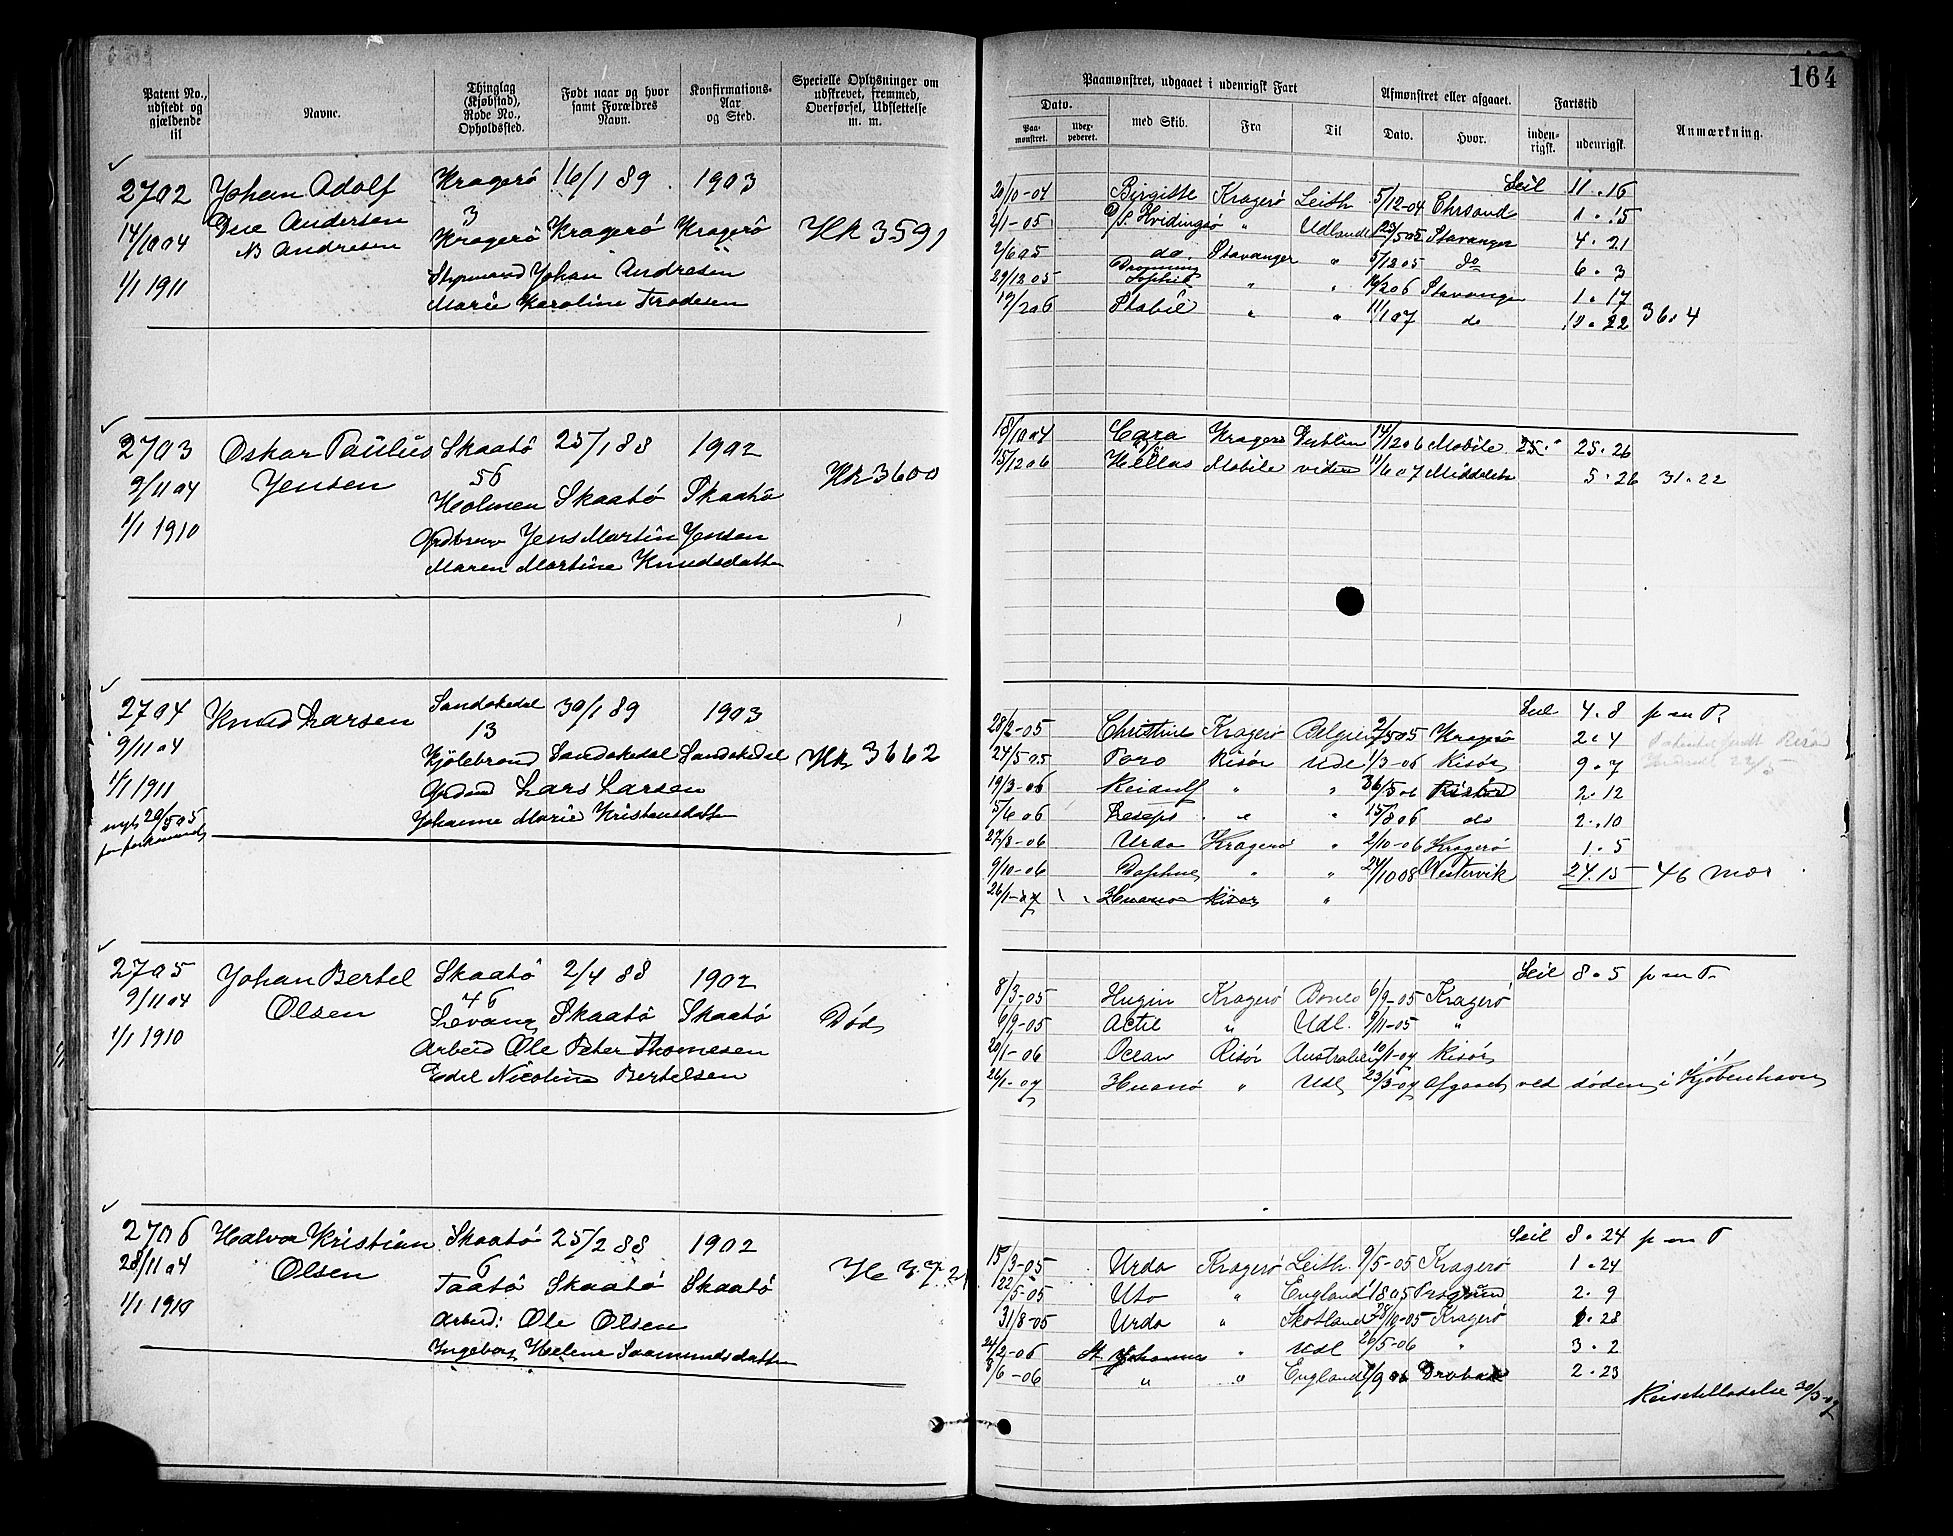 164
Patent No., udstedt og gjældende til
Navne.
Thinglag (Kjøbstad), Rode No., Opholdssted.
Født naar og hvor samt Forældres Navn.
Konfirmations-Aar og Sted.
Specielle Oplysninger om udskrevet, fremmed, Overførsel, Udslettelse m. m.
Paamønstret, udgaaet i udenrigsk Fart
Dato.
Paa-mønstret.
Udex-pederet.
med Skib.
Fra
Til
Afmønstret eller afgaaet.
Dato.
Hvor.
Fartstid
inden-rigsk.
udenrigsk.
Anmærkning.
2702 Johan Adolf Kragerö 16/1 89 1903
Due Andersen 3
14/10 04 Ns Andresen Kragerö Kragerö Kragerö Hk 3591
Styrmand Johan Andresen
1/1 1911 Marie Karoline
Seil 11.16
20/10-04 Birgitte Kragerö Leith 5/12-04 Chrsand 1.15
2/1-05 D/S Hvidingsö " Udlandet 23/5 05 Stavanger 4.21
2/6 05 do. Stavanger " 5/12 05 do 6.3
29/12 05 Dronning Sophie " " 14/2 06 Stavanger 1.17
19/2 06 Stabil " " 11/1 07 do 10.22 36.4
2703 Oskar Paulus Skaatö 25/1 88 1902
9/11 04 Jensen 56 Hk 3600
Holmen Skaatö Skaatö
1/1 1910 Jens Martin Jensen
Maren Martine Knudsdatter
18/10 04 Cara Kragerö Dublin 14/12 06 Mobile 25." 25.26
15/12 06 Hellas Mobile videre 11/6 07 Middelsbr 5.26 31.22
2704 Knud Larsen Sandøkedal 30/1 89 1903
9/11 04 13
Kjölebrønd Sandøkedal Sandøkedal Hk 3662
1/1 1911 Lars Larsen
nyt 20/5 05 Johanne Marie Kristensdatter
for forkommet
Seil 4.8 p m P.
28/2-05 Christine Kragerö Belgien 2/5 05 Kragerö 2.4
24/5 05 Toro Risör Udl 1/3-06 Risör 9.7
19/3-06 Reiaulf " " 26/5 06 2.12
5/6 06 " " 15/8 06 do 2.10
27/8-06 Urda Kragerö " 2/10-06 Kragerö 1.5
9/10-06 Daphne " " 24/10 08 Westervik 24.15 46 mdr
26/1-07 Huanoa Risør "
2705 Johan Bertel Skaatö 2/4 88 1902
9/11 04 Olsen 46
Levang Skaatö Skaatö Død
1/1 1910 Arbeid Ole Peter Thomesen
Edel Nicoline Bertelsen
Seil 8.5 p m P.
8/3-05 Hugin Kragerö 6/9-05 Kragerö
6/9-05 Actil " Udl. 9/11-05 "
20/1-06 Ocean Risör Australien 10/1-07 Risör
26/1-07 Huanoa " Udl 23/3-07 afgaaet ved døden i Kjøbenhavn
2706 Halvor Kristian Skaatö 25/2 88 1902
28/11 04 Olsen 6
Taatö Skaatö Skaatö
1/1 1910 Arbeid: Ole Olsen
Ingeborg Helene Saamundsdatter
Seil 8.24 p m P
15/3-05 Urda Kragerö Leith 9/5-05 Kragerö 1.24
22/5-05 Uto " England 1/8 05 Porsgrund 2.9
31/8-05 Urda " Skotland 28/10-05 Kragerö 1.28
24/2-06 St. Johannes " Udl 26/5-06 " 3.2
8/6-06 " " England Drobak 2.23
Reisetilladelse 30/3-07